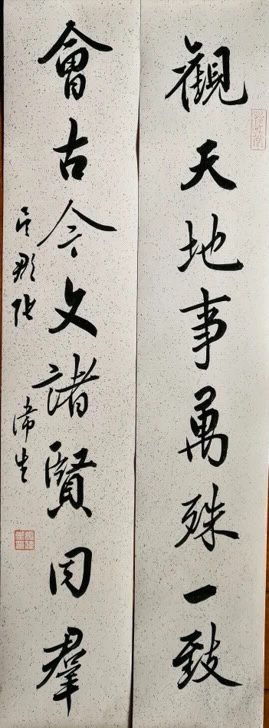 觀天地事萬殊一致
會古今文諸賢同羣